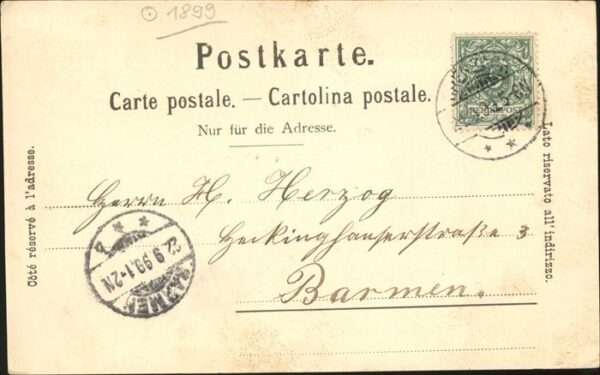 1899
Postkarte.
Carte postale. — Cartolina postale.
Nur für die Adresse.
Côté réservé à l'adresse.
Lato riservato all' indirizzo.
Herrn H. Herzog
Heckinghauserstraße 3
Barmen.
BARMEN
22.9.99.1-2N.